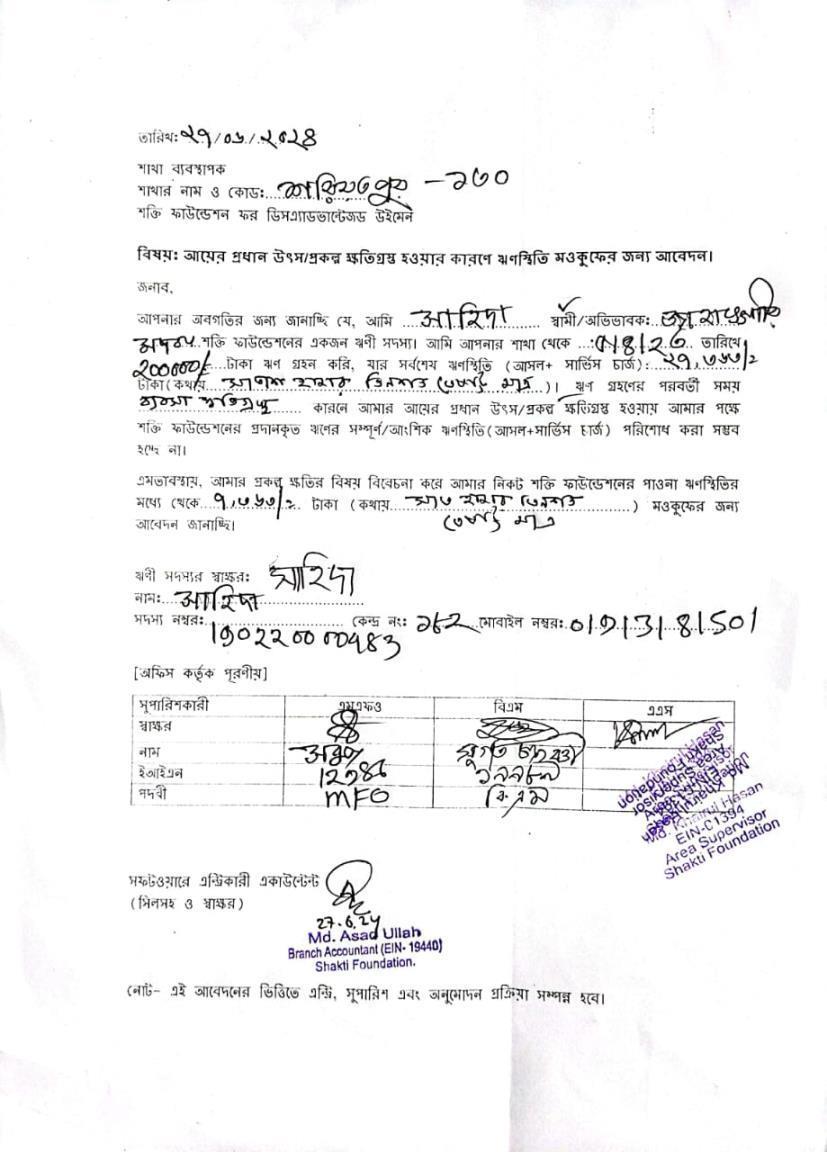 তারিখ: ২৭/০৬/২০২৪
শাখা ব্যবস্থাপক
শাখার নাম ও কোড: শরিয়তপুর - ১৩০
শক্তি ফাউন্ডেশন ফর ডিসএ্যাডভান্টেজড উইমেন
বিষয়: আয়ের প্রধান উৎস/প্রকল্প ক্ষতিগ্রস্থ হওয়ার কারণে ঋণস্থিতি মওকুফের জন্য আবেদন।
জনাব,
আপনার অবগতির জন্য জানাচ্ছি যে, আমি সাহিদা স্বামী/অভিভাবক:
শক্তি ফাউন্ডেশনের একজন ঋণী সদস্য। আমি আপনার শাখা থেকে তারিখে
200000/- টাকা ঋণ গ্রহন করি, যার সর্বশেষ ঋণস্থিতি (আসল+ সার্ভিস চার্জ): ২৭,৩৬৩/২
টাকা (কথায় সাতাশ হাজার তিনশত তেষট্টি মাত্র)। ঋণ গ্রহণের পরবর্তী সময়
ব্যবসা ক্ষতিগ্রস্থ কারনে আমার আয়ের প্রধান উৎস/প্রকল্প ক্ষতিগ্রস্থ হওয়ায় আমার পক্ষে
শক্তি ফাউন্ডেশনের প্রদানকৃত ঋণের সম্পূর্ণ/আংশিক ঋণস্থিতি(আসল+সার্ভিস চার্জ) পরিশোধ করা সম্ভব
হচ্ছে না।
এমতাবস্থায়, আমার প্রকল্প ক্ষতির বিষয় বিবেচনা করে আমার নিকট শক্তি ফাউন্ডেশনের পাওনা ঋণস্থিতির
মধ্যে থেকে ৭,৩৬৩/২ টাকা (কথায় সাত হাজার তিনশত ) মওকুফের জন্য
তেষট্টি মাত্র
আবেদন জানাচ্ছি।
ঋণী সদস্যর স্বাক্ষর: সাহিদা
নাম: সাহিদা
সদস্য নম্বর: কেন্দ্র নং: ১৮২ মোবাইল নম্বর:
[অফিস কর্তৃক পূরণীয়]
সুপারিশকারী এমএফও বিএম এএস
স্বাক্ষর
নাম
ইআইএন
পদবী MFO বি.এম
Md. Khairul Hasan
EIN-C1394
Area Supervisor
Shakti Foundation
সফটওয়ারে এন্ট্রিকারী একাউন্টেন্ট
(সিলসহ ও স্বাক্ষর)
27.6.24
Md. Asad Ullah
Branch Accountant (EIN- 19440)
Shakti Foundation.
নোট- এই আবেদনের ভিত্তিতে এন্ট্রি, সুপারিশ এবং অনুমোদন প্রক্রিয়া সম্পন্ন হবে।